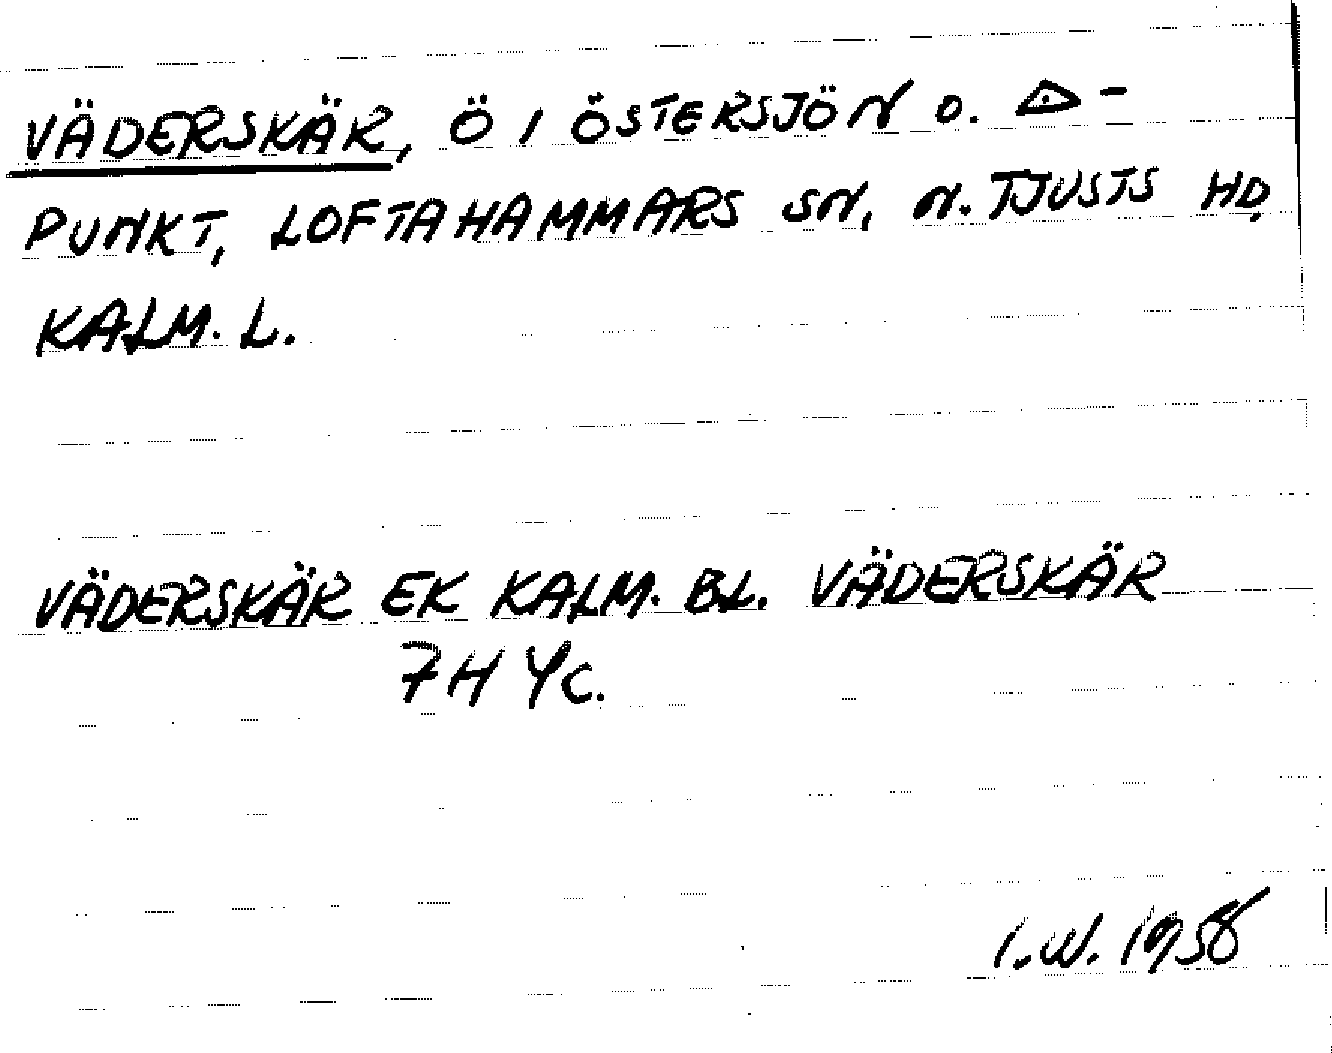 VÄDERSKÄR, Ö I ÖSTERSJÖN O. △-
PUNKT, LOFTAHAMMARS SN, N. TJUSTS HD,
KALM. L.
VÄDERSKÄR EK KALM. BL. VÄDERSKÄR
7H Yc.
I.W. 1958